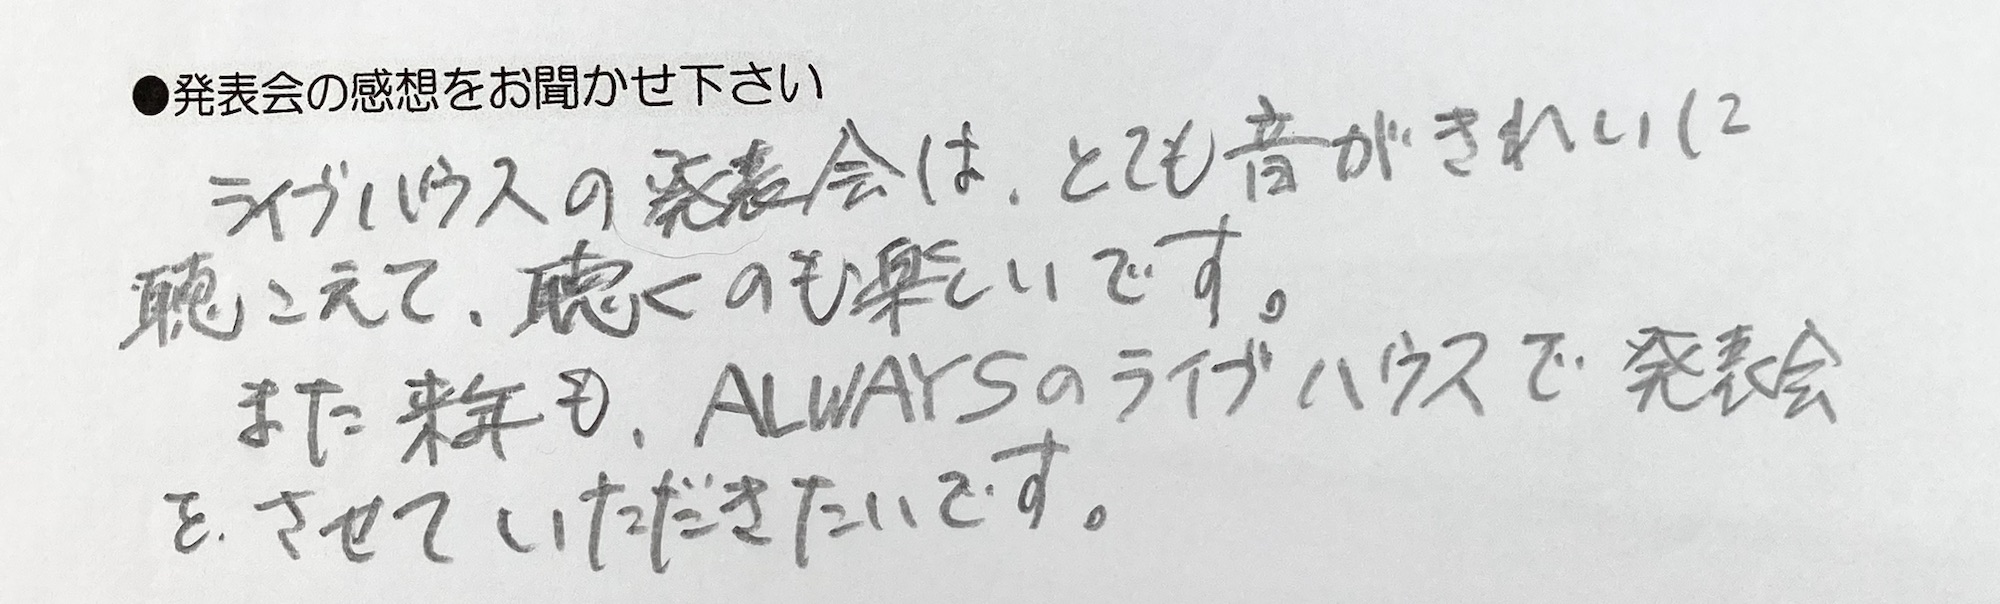 ●発表会の感想をお聞かせ下さい
ライブハウスの発表会は、とても音がきれいに
聴こえて、聴くのも楽しいです。
また来年も、ALWAYSのライブハウスで発表会
を、させていただきたいです。